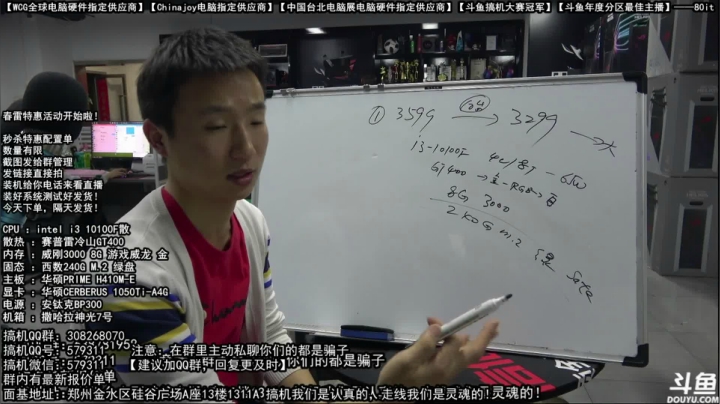 【WCG全球电脑硬件指定供应商】【Chinajoy电脑指定供应商】【中国台北电脑展电脑硬件指定供应商】【斗鱼搞机大赛冠军】【斗鱼年度分区最佳主播】——80it
春雷特惠活动开始啦!
秒杀特惠配置单
数量有限
截图发给群管理
发链接直接拍
装机给你电话来看直播
装好系统测试好发货!
今天下单,隔天发货!
CPU : intel i3 10100F散
散热 : 赛普雷冷山GT400
内存 : 威刚3000 8G 游戏威龙 金
固态 : 西数240G M.2 绿盘
主板 : 华硕PRIME H410M-E
显卡 : 华硕CERBERUS 1050Ti-A4G
电源 : 安钛克BP300
机箱 : 撒哈拉神光7号
搞机QQ群: 308268070
搞机QQ号: 579311
注意: 在群里主动私聊你们的都是骗子
搞机微信: 579311
【建议加QQ群
回复更及时】
群内有最新报价单
面基地址: 郑州金水区硅谷广场A座13楼1311A3
搞机我们是认真的!
走线我们是灵魂的!
① 3599 → 3299
i3-10100F 4C/8T - 65W
GT400
RGB
8G 3000
240G m.2
斗鱼
DOUYU.COM